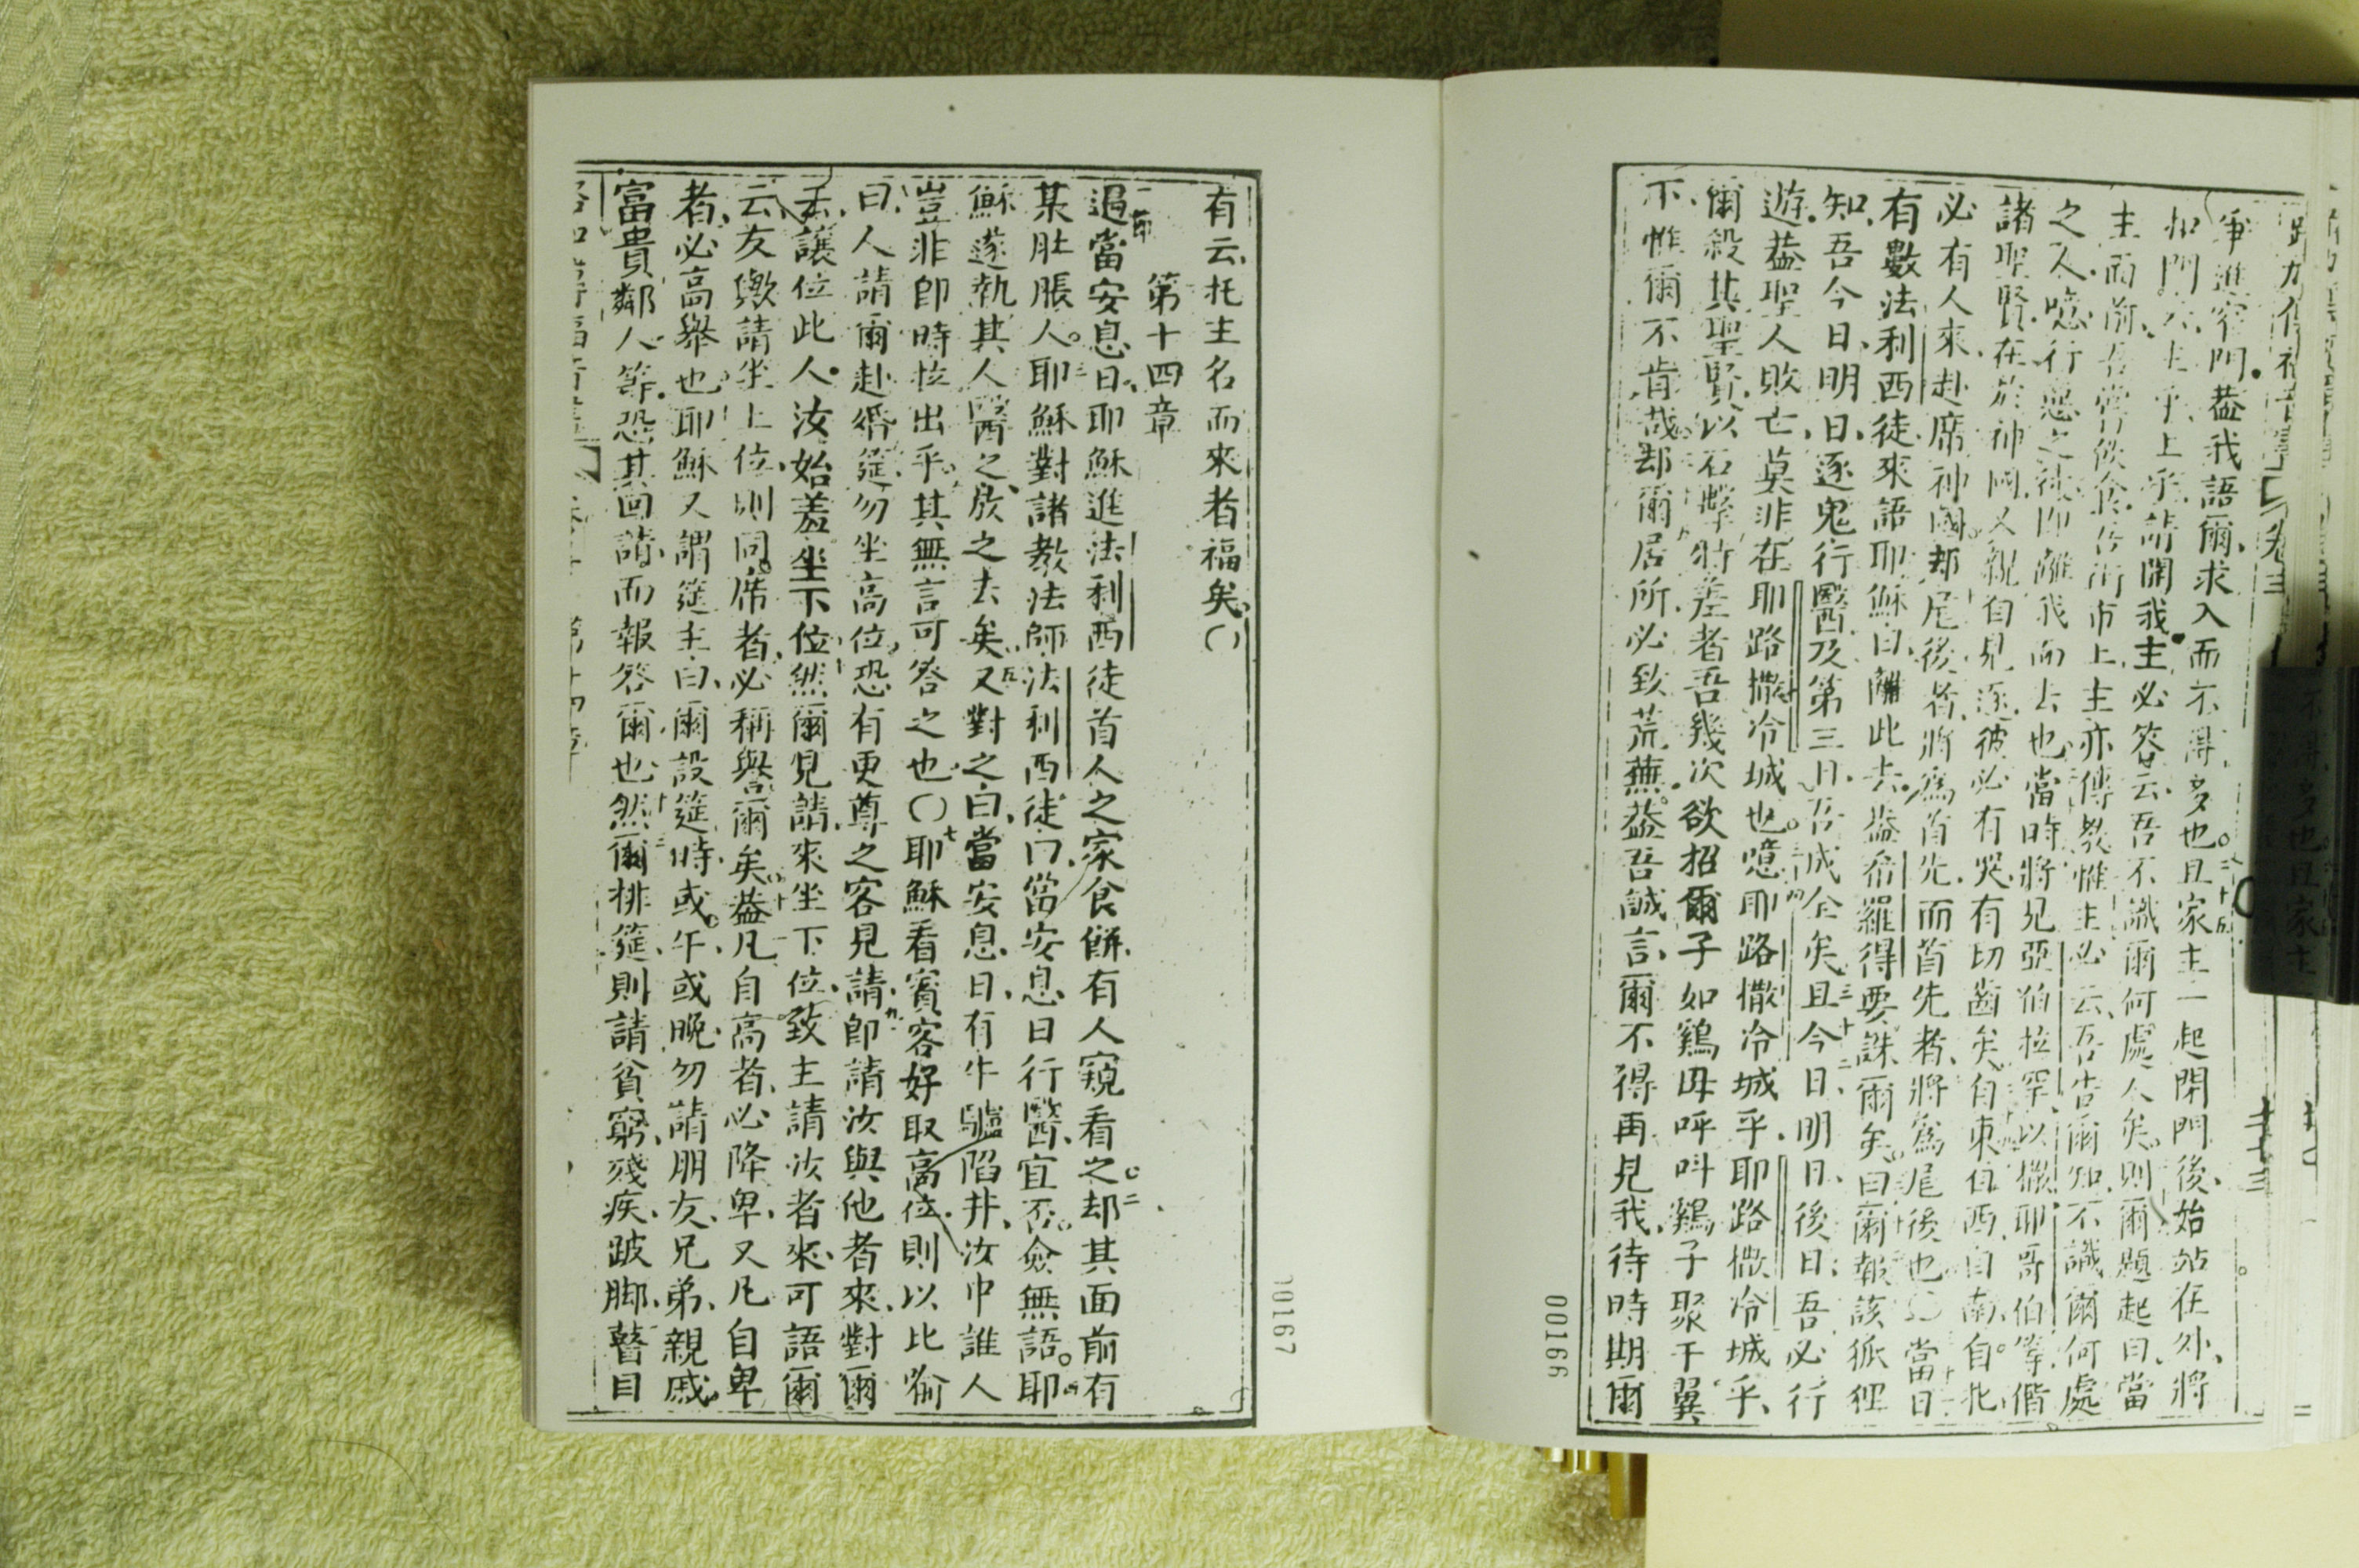 爭進窄門蓋我語爾求入而不得多也且家主一起閉門後始站在外將
扣門云主乎主乎請開我主必答云吾不識爾何處人矣則爾題起曰當
主面前吾嘗飲食吾街市上主亦傳教惟主必云吾告爾知不識爾何處
之人噫行惡之徒即離我而去也當時將見亞伯拉罕以撒耶哥伯等偕
諸聖賢在於神國又親自見逐彼必有哭有切齒矣自東自西自南自北
必有人來赴席神國却尾後者將為首先而首先者將為尾後也〇當日
有數法利西徒來語耶穌曰離此去蓋希羅得要誅爾矣曰爾報該狐狸
知吾今日明日逐鬼行醫及第三日吾成全矣且今日明日後日吾必行
遊蓋聖人敗亡莫非在耶路撒冷城也噫耶路撒冷城乎耶路撒冷城乎
爾殺其聖賢以石擊特差者吾幾次欲招爾子如鷄毋呼呌鷄子聚于翼
不惟爾不肯哉却爾居所必致荒蕪蓋吾誠言爾不得再見我待時期爾
00166
有云托主名而來者福矣〇
第十四章
過當安息日耶穌進法利西徒首人之家食餅有人窺看之却其面前有
某肚脹人耶穌對諸教法師法利西徒曰當安息日行醫宜否僉無語耶
穌遂執其人醫之放之去矣又對之曰當安息日有牛驢陷井汝中誰人
豈非卽時拉出乎其無言可答之也〇耶穌看賓客好取高位則以比喻
曰人請爾赴婚筵勿坐高位恐有更尊之客見請卽請汝與他者來對爾
云讓位此人汝始羞坐下位然爾見請來坐下位致主請汝者來可語爾
云友繳請坐上位則同席者必稱譽爾矣蓋凡自高者必降卑又凡自卑
者必高舉也耶穌又謂筵主曰爾設筵時或午或晚勿請朋友兄弟親戚
富貴鄰人等恐其回請而報答爾也然爾排筵則請貧窮殘疾跛脚瞽目
00167